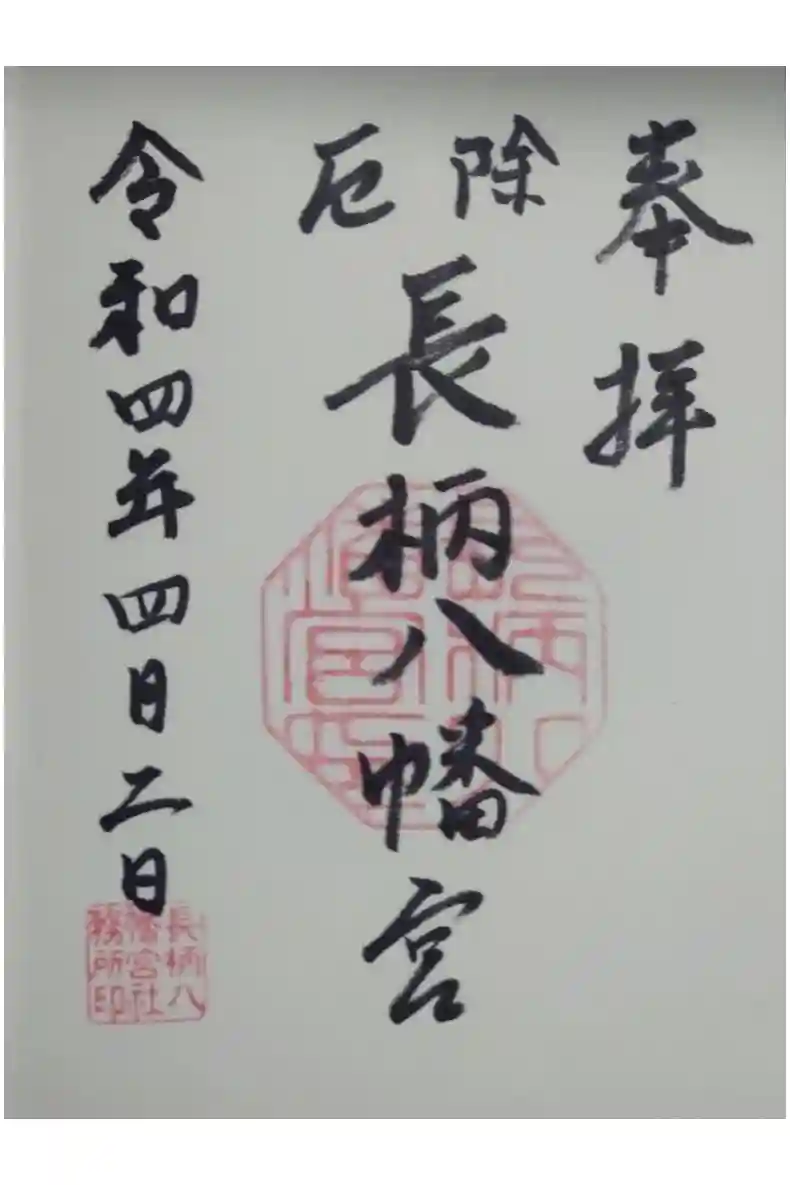 奉拝
除厄
長柄八幡宮
令和四年四日二日
長柄八
幡宮社
務所印